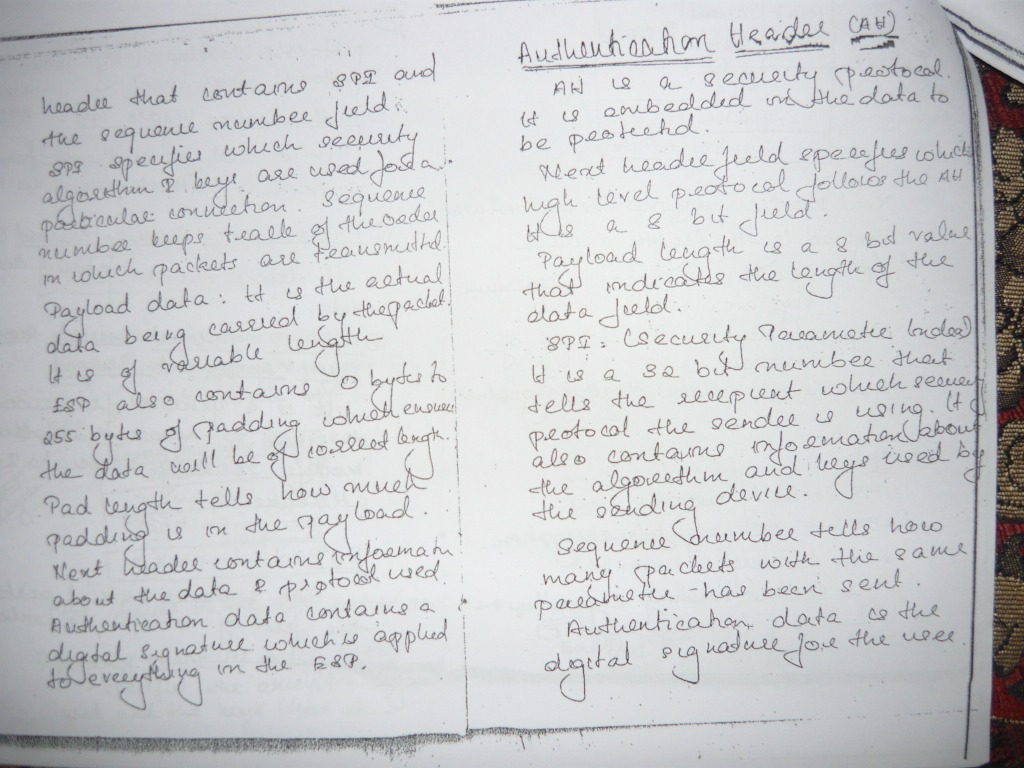 header that contains SPI and
the sequence number field.
SPI specifies which security
algorithm & keys are used for a
particular connection. Sequence
number keeps track of the order
in which packets are transmitted.
Payload data : It is the actual
data being carried by the packet.
It is of variable length
ESP also contains 0 bytes to
255 bytes of padding which ensures
the data will be of correct length.
Pad length tells how much
padding is in the payload.
Next header contains informatn
about the data & protocol used.
Authentication data contains a
digital signature which is applied
to everything in the ESP.
Authentication Header (AH)
AH is a security protocol.
It is embedded in the data to
be protected.
Next header field specifies which
high level protocol follows the AH
It is a 8 bit field.
Payload length is a 8 bit value
that indicates the length of the
data field.
SPI : (Security Parameter Index)
It is a 32 bit number that
tells the recepient which security
protocol the sender is using. It
also contains information about
the algorithm and keys used by
the sending device.
Sequence number tells how
many packets with the same
parameter has been sent.
Authentication data is the
digital signature for the user.